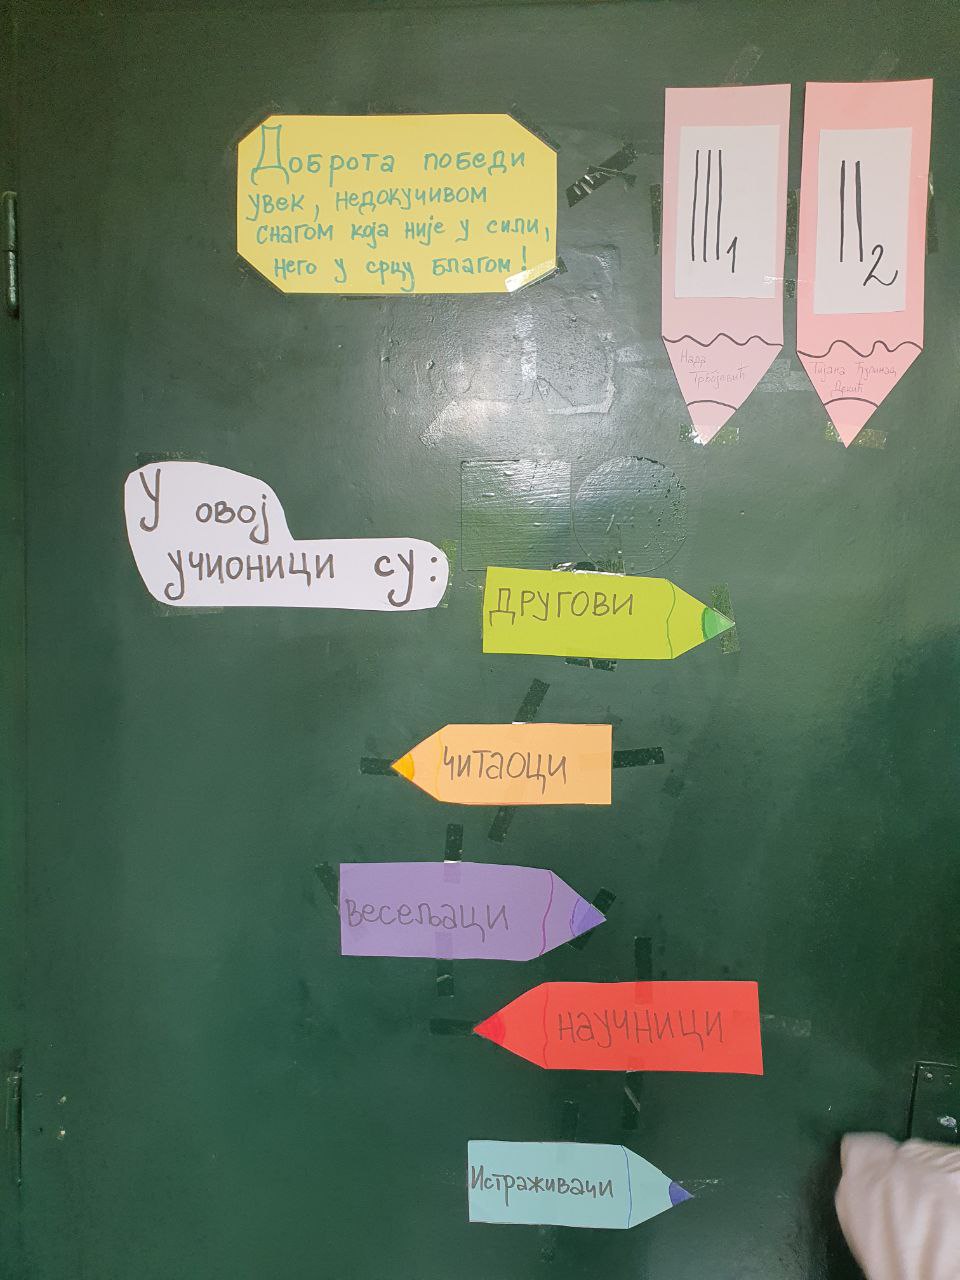 Доброта победи
увек, недокучивом
снагом која није у сили,
него у срцу благом!
III1
Нада
Трбојевић
II2
Тијана Ћулинац
Декић
У овој
учионици су:
ДРУГОВИ
читаоци
весељаци
научници
Истраживачи